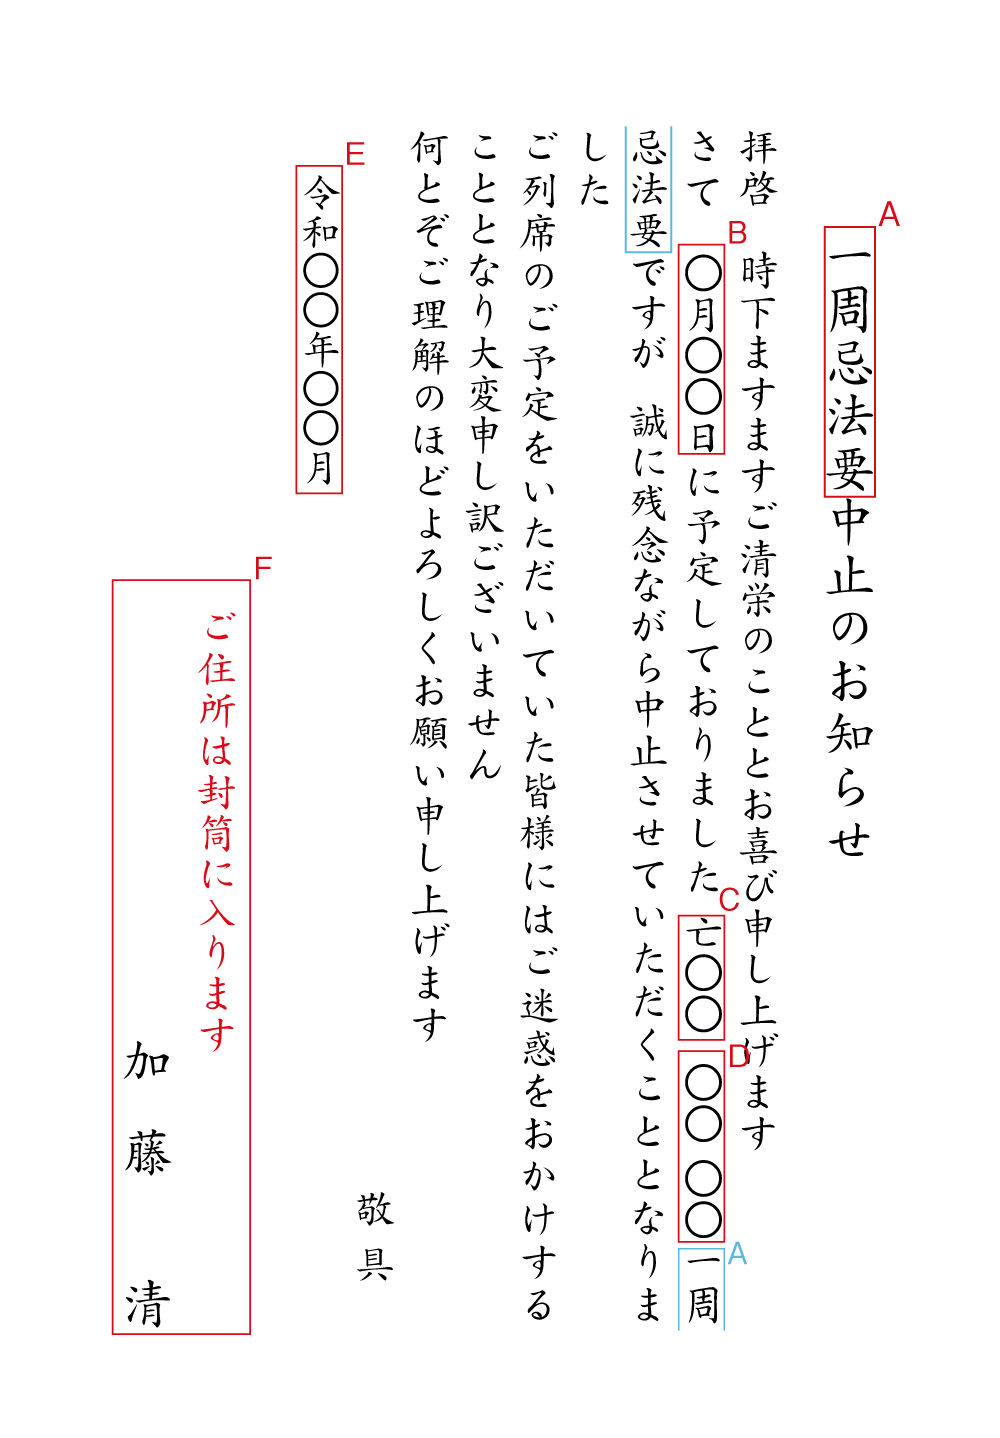 A
一周忌法要中止のお知らせ
拝啓　時下ますますご清栄のこととお喜び申し上げます
B
C
D
さて　〇月〇〇日に予定しておりました　亡〇〇　〇〇　〇〇　一周
A
忌法要ですが　誠に残念ながら中止させていただくこととなりま
した
ご列席のご予定をいただいていた皆様にはご迷惑をおかけする
こととなり大変申し訳ございません
何とぞご理解のほどよろしくお願い申し上げます
敬具
E
令和〇〇年〇〇月
F
ご住所は封筒に入ります
加藤　清